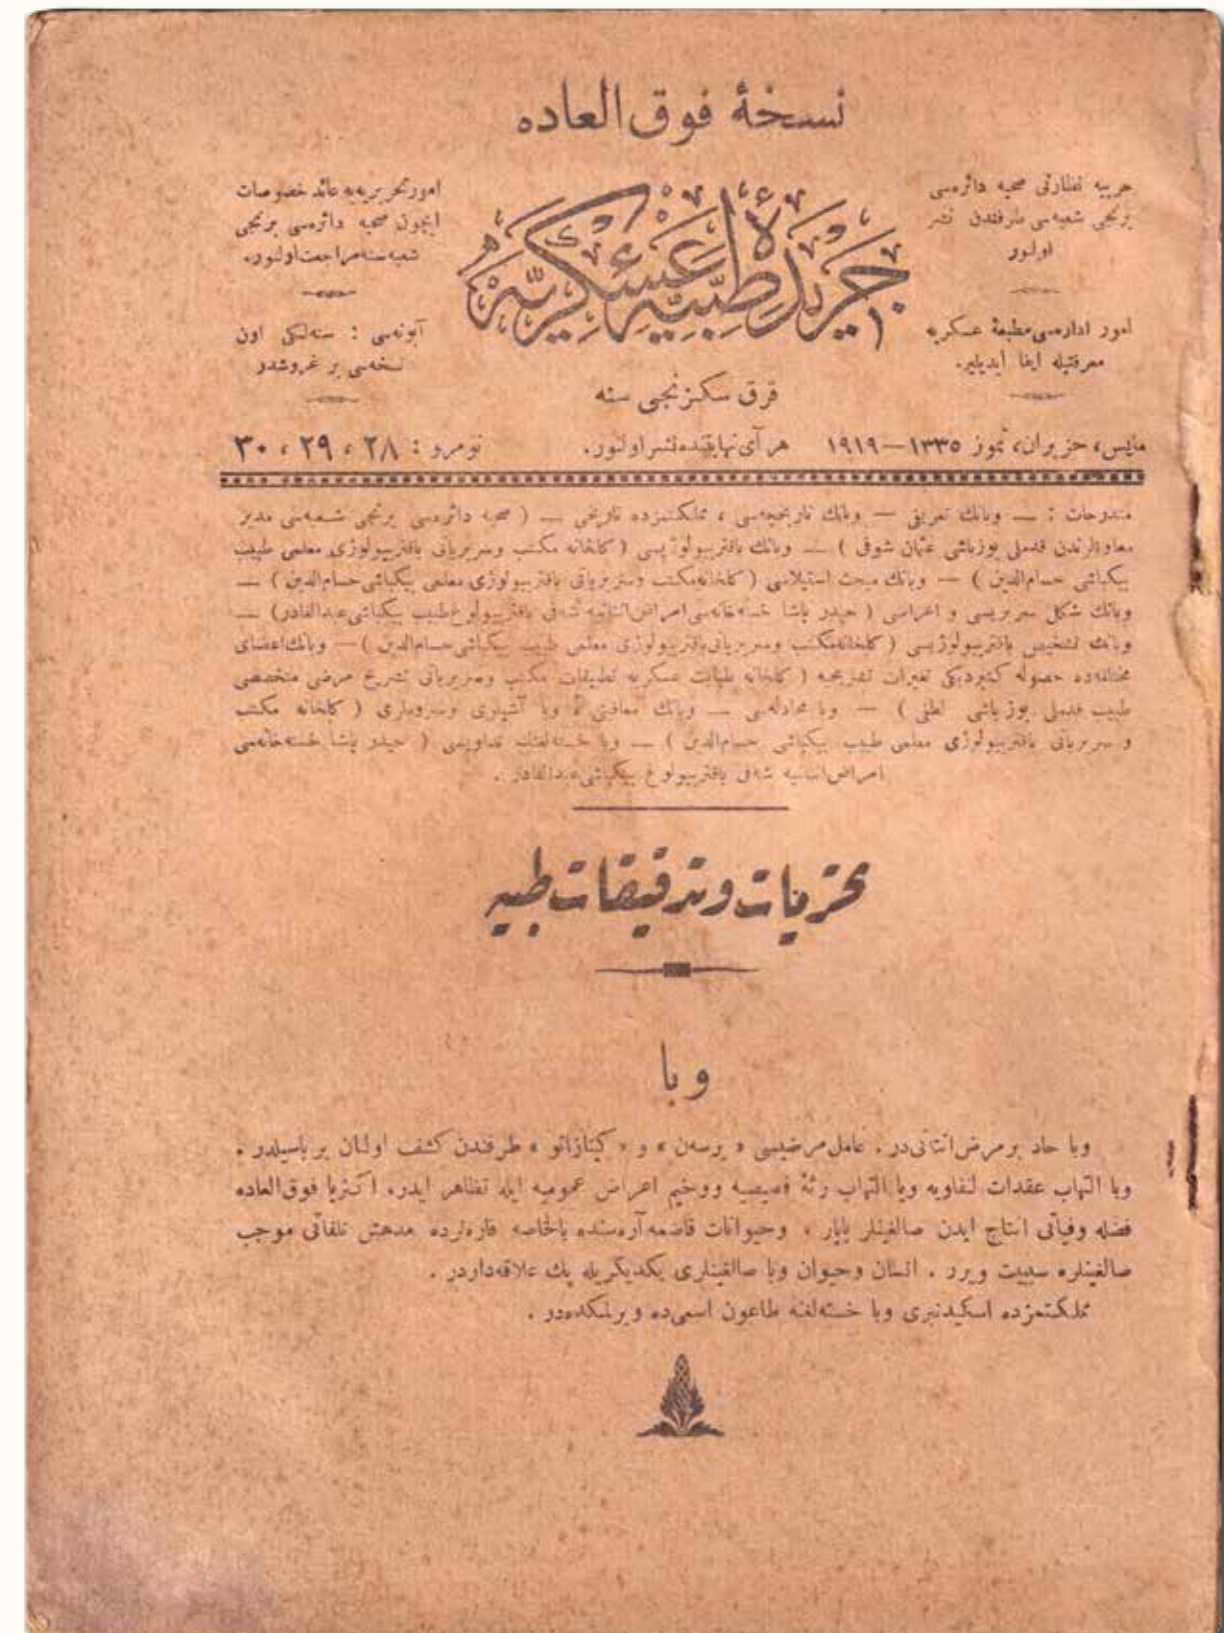 نسخۀ فوق العاده
حربیه نظارتی صحیه دائره‌سی
برنجی شعبه‌سی طرفندن نشر
اولنور
امور اداره‌سی مطبعۀ عسکریه
معرفتیله ایفا ایدیلیر.
جریدۀ طبیۀ عسکریه
امور تحریریه‌یه عائد خصوصات
ایچون صحیه دائره‌سی برنجی
شعبه‌سنه مراجعت اولنور.
آبونه‌سی : سنه‌لکی اون
نسخه‌سی بر غروشدر
قرق سکزنجی سنه
مایس، حزیران، تموز ۱۳۳۵—۱۹۱۹ هر آی نهایتنده نشر اولنور. نومرو : ۲۸ ، ۲۹ ، ۳۰
مندرجات : — وبانك تعریفی — وبانك تاریخچه‌سی ، مملکتمزده تاریخی — ( صحیه دائره‌سی برنجی شعبه‌سی مدیر
معاونلرندن قدملی یوزباشی عثمان شوقی ) — وبانك باقتریولوژیسی ( کلخانه مکتب وسریریاتی باقتریولوژی معلمی طبیب
بیکباشی حسام‌الدین ) — وبانك مبحث استیلاسی ( کلخانه مکتب وسریریاتی باقتریولوژی معلمی بیکباشی حسام‌الدین ) —
وبانك شکل سریریسی و اعراضی ( حیدر پاشا خسته‌خانه‌سی امراض انتانیه شفی باقتریولوغ طبیب بیکباشی عبدالقادر ) —
وبانك تشخیص باقتریولوژیسی ( کلخانه مکتب وسریریاتی باقتریولوژی معلمی طبیب بیکباشی حسام‌الدین ) — وبانك اعضای
مختلفه‌ده حصوله کتیردیکی تغیرات تشریحیه ( کلخانه طبابت عسکریه تطبیقات مکتب وسریریاتی تشریح مرضی متخصصی
طبیب قدملی یوزباشی لطفی ) — وبا مجادله‌سی — وبانك معافیتی ، وبا آشیلری وسروملری ( کلخانه مکتب
و سریریاتی باقتریولوژی معلمی طبیب بیکباشی حسام‌الدین ) — وبا خسته‌لغنك تداویسی ( حیدر پاشا خسته‌خانه‌سی
امراض انتانیه شفی باقتریولوغ بیکباشی عبدالقادر .
تحریات و تدقیقات طبیه
وبا
وبا حاد بر مرض انتانی‌در . عامل مرضیسی « یرسه‌ن » و « کیتازاتو » طرفندن کشف اولنان بر باسیلدر .
وبا التهاب عقدات لنفاویه ویا التهاب رئۀ فصیصیه ووخیم اعراض عمومیه ایله تظاهر ایدر. اکثریا فوق‌العاده
فضله وفیاتی انتاج ایدن صالغینلر یاپار ، وحیوانات قاضمه آره‌سنده بالخاصه فاره‌لرده مدهش تلفاتی موجب
صالغینلره سبیت ویرر . انسان وحیوان وبا صالغینلری یکدیکریله پك علاقه‌داردر .
مملکتمزده اسکیدنبری وبا خسته‌لغنه طاعون اسمی‌ده ویرلمکده‌در .